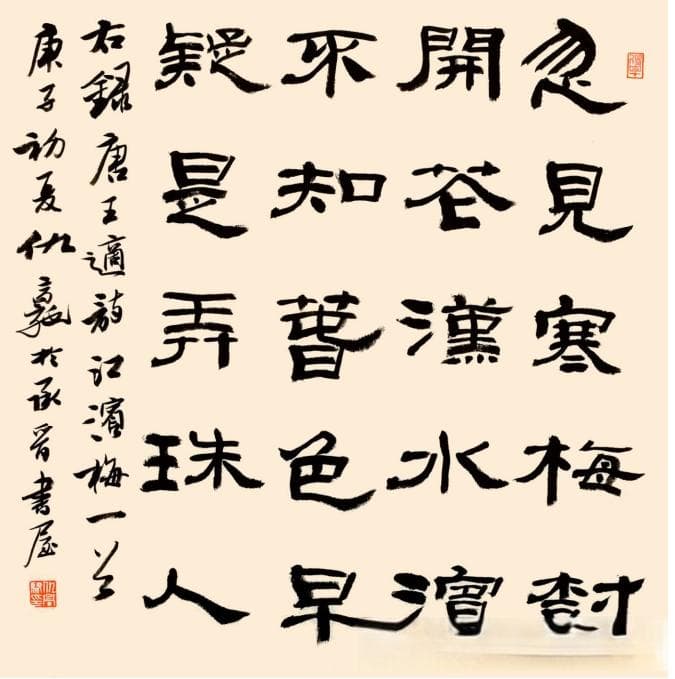 忽見寒梅樹
開花漢水濱
不知萅色早
疑是弄珠人
右錄唐王適詩江濱梅一首
庚子初夏仇於承晋書屋